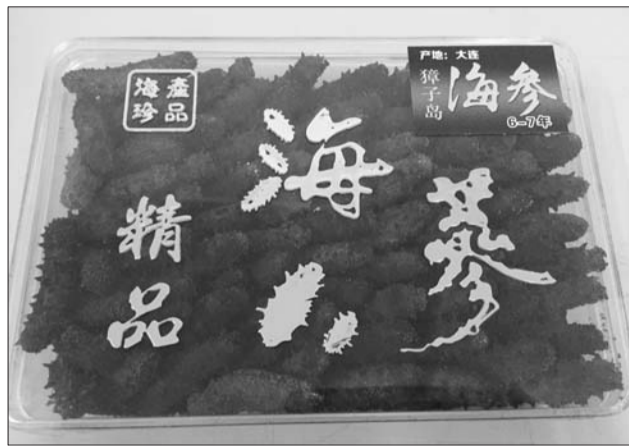 海產
珍品
产地：大连
獐子岛
海参
6-7年
海蔘
精品